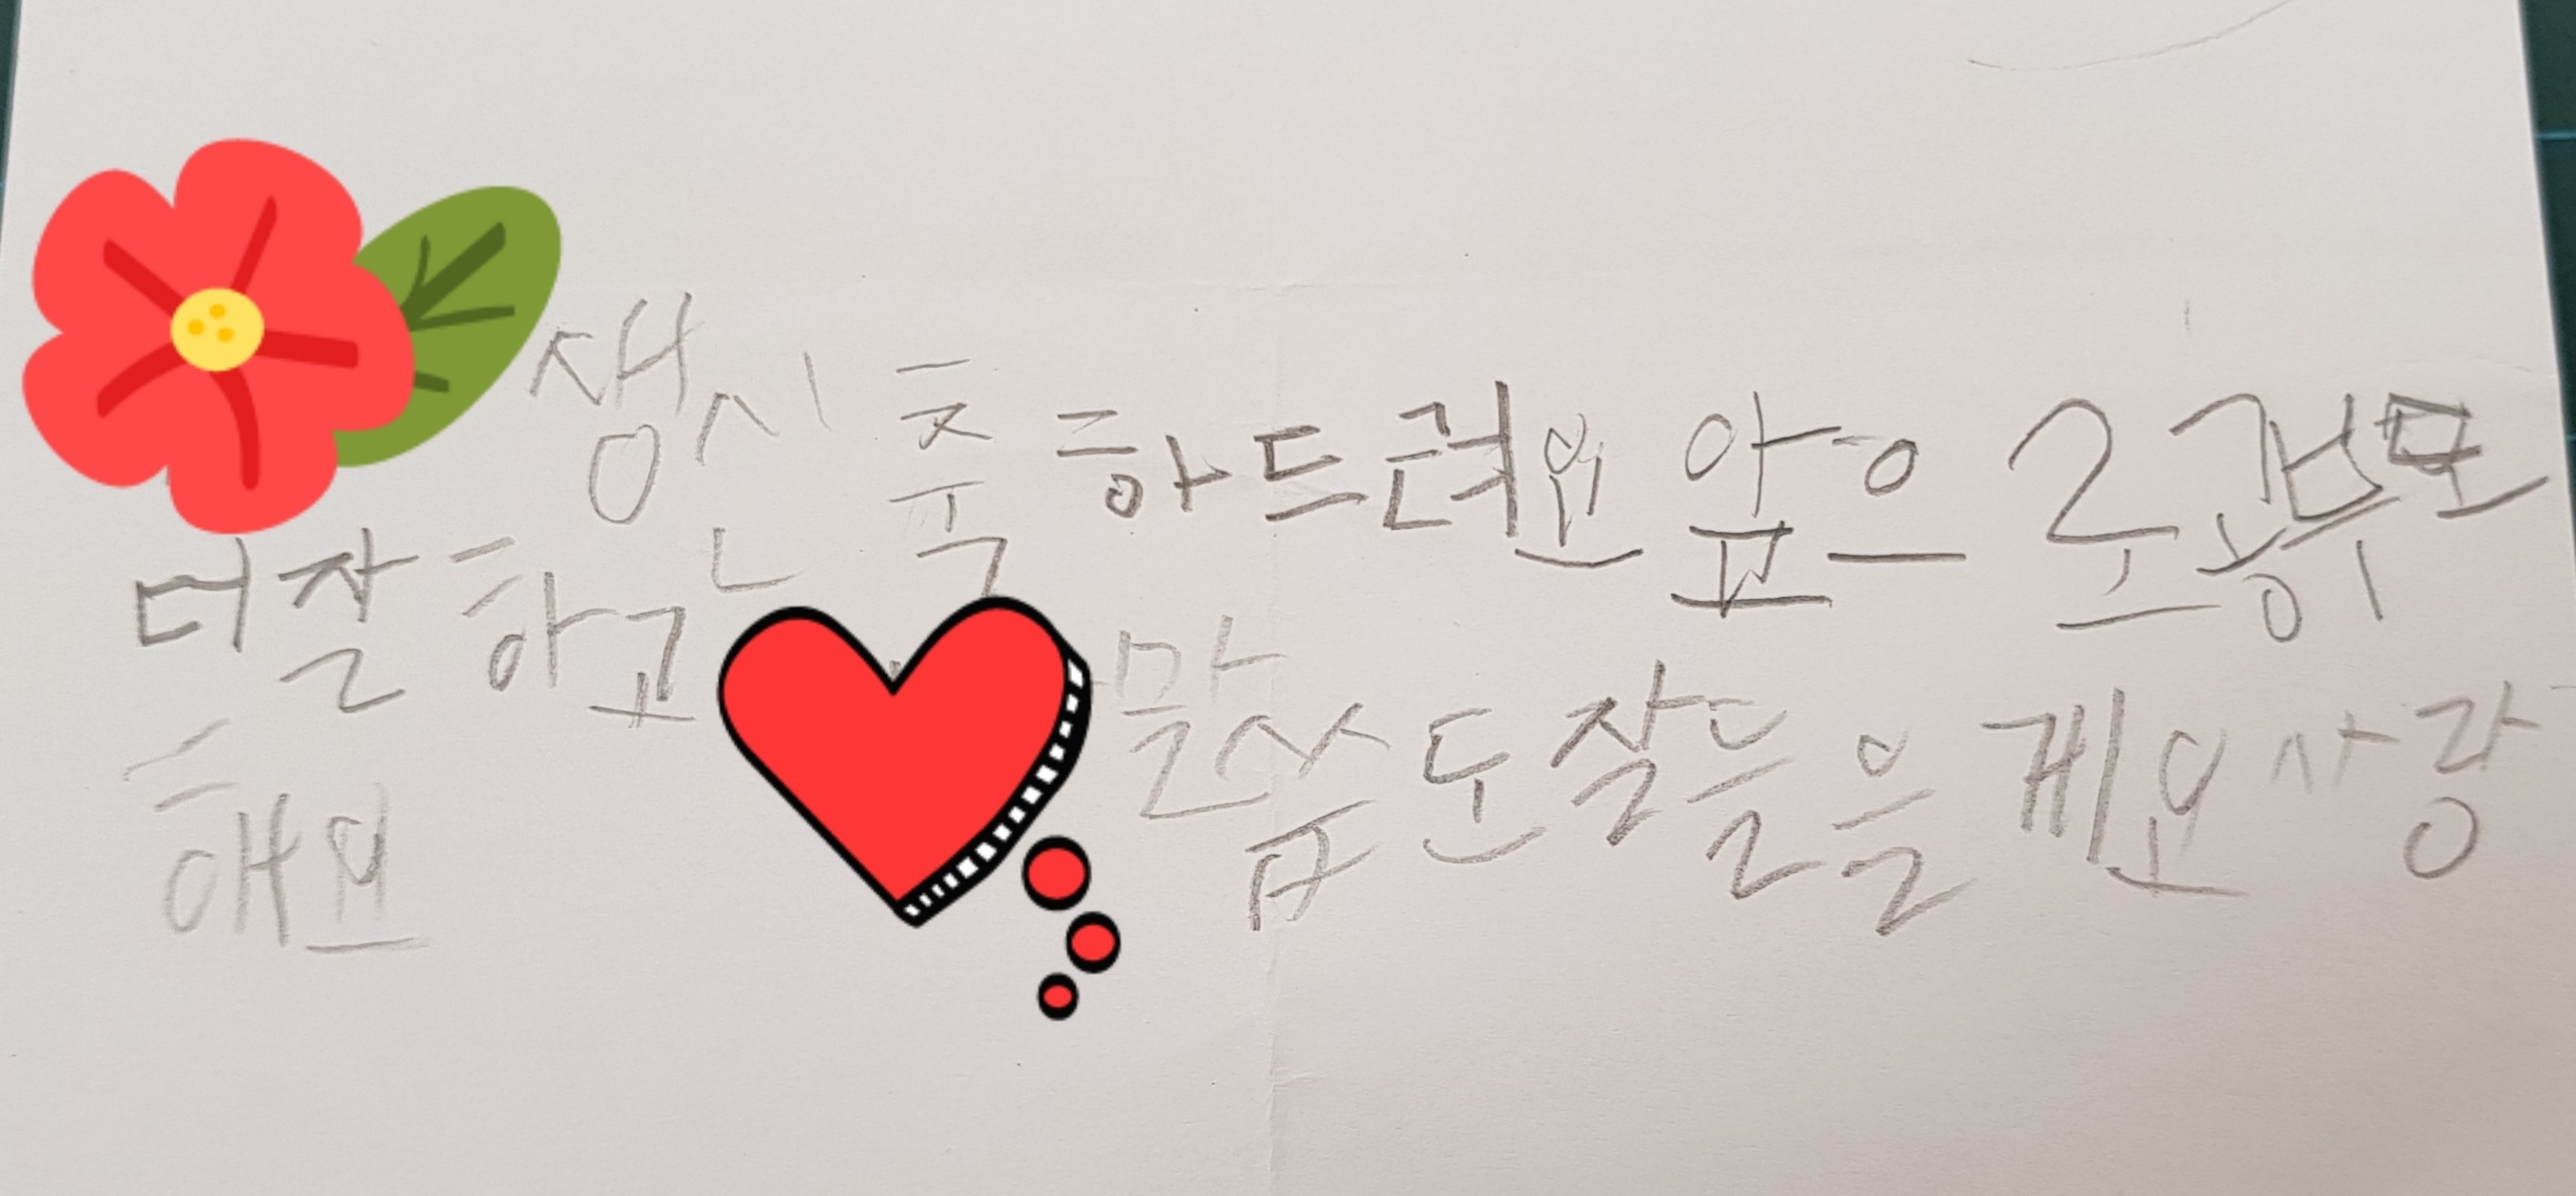 생신 축하드려요 앞으로 공부도
더 잘하고 말씀도 잘 들을게요 사랑
해요